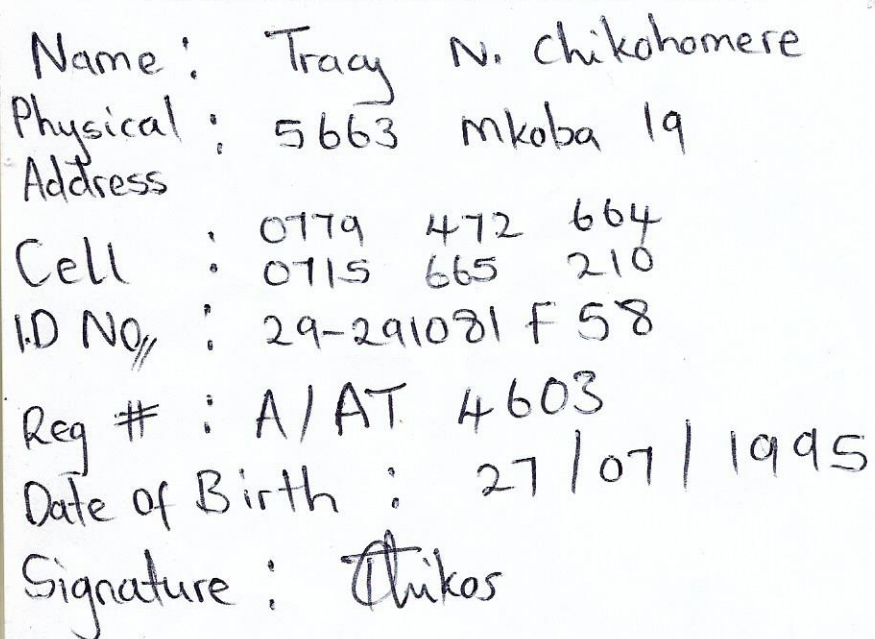 Name : Tracy N. Chikohomere
Physical : 5663 Mkoba 19
Address
Cell : 0779 472 664
0715 665 210
I.D NO,, : 29-291081 F 58
Reg # : A/AT 4603
Date of Birth : 27/07/1995
Signature : Chikos